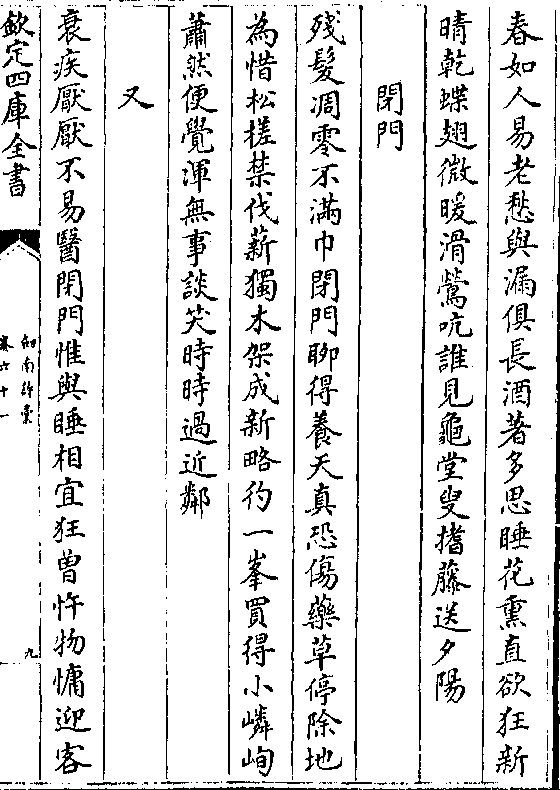 春如人易老愁與漏俱長酒著多思睡花熏直欲狂新
晴乾蝶翅微暖滑鶯吭誰見龜堂叟搘藤送夕陽
閉門
残髮凋零不滿巾閉門聊得養天真恐傷藥草停除地
為惜松槎禁伐薪獨木架成新略彴一峯買得小嶙峋
蕭然便覺渾無事談笑時時過近鄰
又
衰疾厭厭不易醫閉門惟與睡相宜狂曾忤物慵迎客
欽定四庫全書
劒南詩稾
卷六十一
九